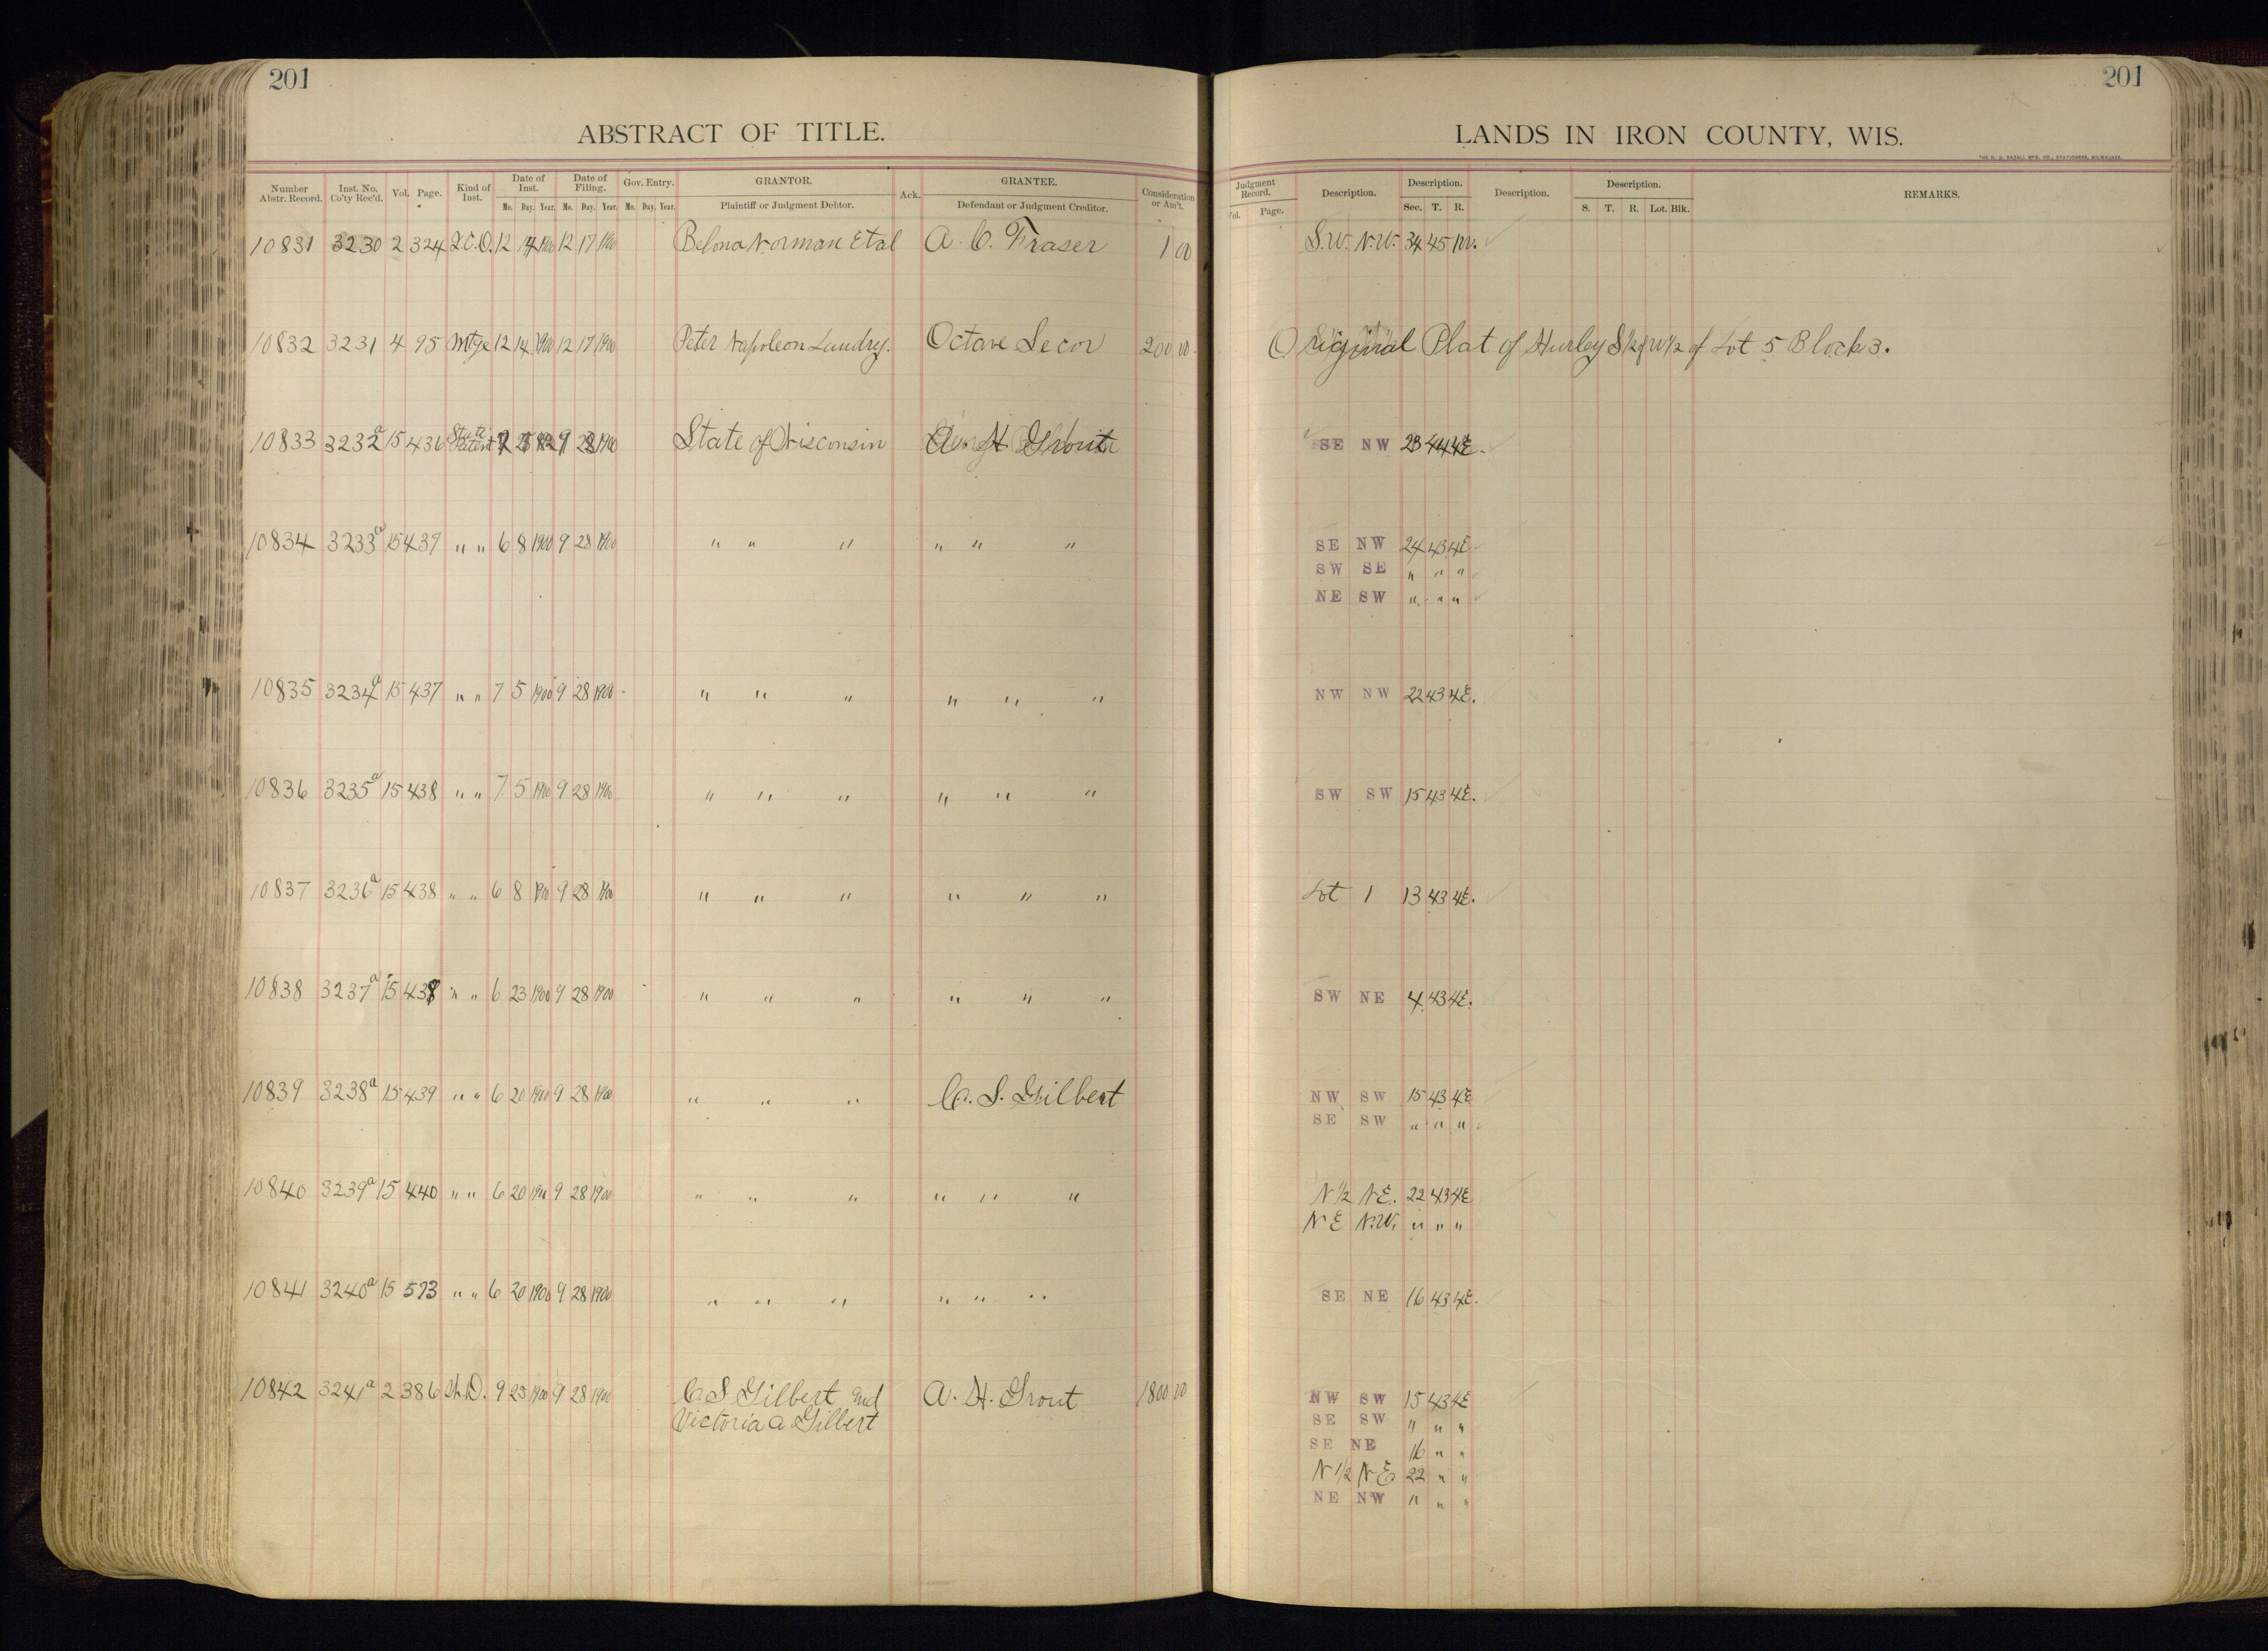 201
201
ABSTRACT OF TITLE.
LANDS IN IRON COUNTY, WIS.
Number Abstr. Record. Inst. No. Co'ty Rec'd. Vol. Page. Kind of Inst. Date of Inst. Date of Filing. Gov. Entry. GRANTOR. Ack. GRANTEE. Consideration or Am't. Judgment Record. Description. Description. Description. Description. REMARKS.
Mo. Day. Year. Mo. Day. Year. Mo. Day. Year. Plaintiff or Judgment Debtor. Defendant or Judgment Creditor. Vol. Page. Sec. T. R. S. T. R. Lot. Blk.
10831 3230 2 324 Q.C.D. 12 14 1900 12 17 1900 Norman Et al A. C. Fraser 1 00 S.W. N.W. 34 45
10832 3231 4 95 Mtge 12 14 1900 12 17 1900 Peter Napoleon Landry. Octave Secor 200 00 Original Plat of Hurley S 1/2 of W 1/2 of Lot 5 Block 3.
10833 3232a 15 436 State Patent 9 28 1900 State of Wisconsin SE NW 44 4E.
10834 3233a 15 437 " " 6 8 1900 9 28 1900 " " " " " " SE NW 24 43 4E
SW SE " " "
NE SW " " "
10835 3234a 15 437 " " 7 5 1900 9 28 1900 " " " " " " NW NW 22 43 4E.
10836 3235a 15 438 " " 7 5 1900 9 28 1900 " " " " " " SW SW 15 43 4E.
10837 3236a 15 438 " " 6 8 1900 9 28 1900 " " " " " " Lot 1 13 43 4E.
10838 3237a 15 438 " " 6 23 1900 9 28 1900 " " " " " " SW NE 4 43 4E.
10839 3238a 15 439 " " 6 20 1900 9 28 1900 " " " C. S. Gilbert NW SW 15 43 4E
SE SW " " "
10840 3239a 15 440 " " 6 20 1900 9 28 1900 " " " " " " N 1/2 N.E. 22 43 4E
N E N.W. " " "
10841 3240a 15 573 " " 6 20 1900 9 28 1900 " " " " " " SE NE 16 43 4E.
10842 3241a 2 386 W.D. 9 25 1900 9 28 1900 C S Gilbert and A. H. Grout 1800 00 NW SW 15 43 4E
Victoria A Gilbert SE SW " " "
SE NE 16 " "
N 1/2 N E 22 " "
NE NW " " "